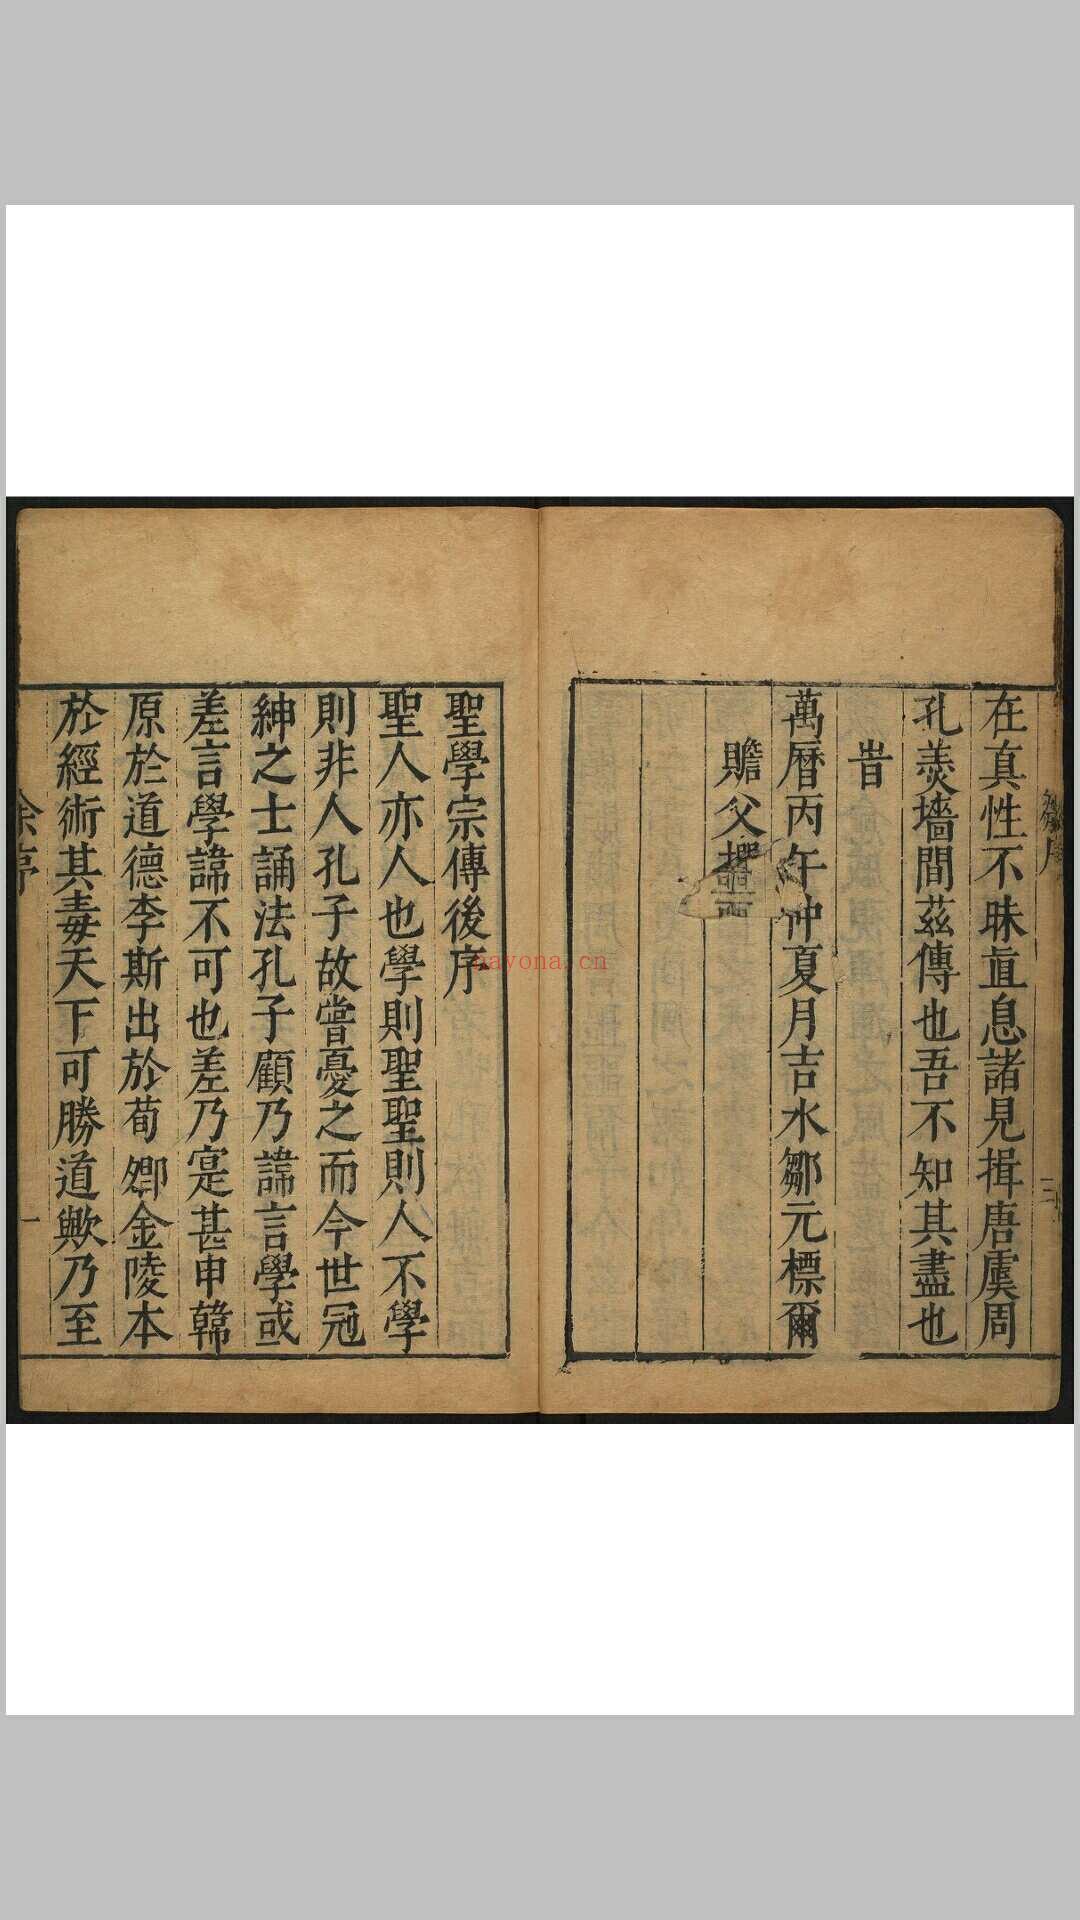 在真性不昧直息諸見揖唐虞周
孔羮墻間茲傳也吾不知其盡也
旹
萬曆丙午仲夏月吉水鄒元標爾
瞻父撰
鄒序
三
聖學宗傳後序
聖人亦人也學則聖聖則人不學
則非人孔子故嘗憂之而今世冠
紳之士誦法孔子顧乃諱言學或
差言學諱不可也差乃寔甚申韓
原於道德李斯出於荀卿金陵本
於經術其毒天下可勝道歟乃至
余序
一
nayona.cn